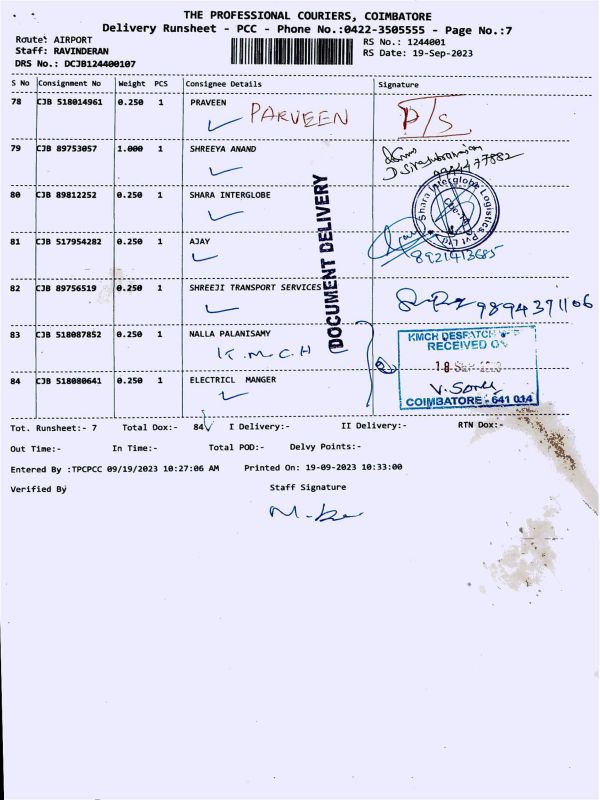 THE PROFESSIONAL COURIERS, COIMBATORE
Delivery Runsheet - PCC - Phone No.:0422-3505555 - Page No.:7
Route: AIRPORT
RS No.: 1244001
Staff: RAVINDERAN
RS Date: 19-Sep-2023
DRS No.: DCJB124400107
S No Consignment No Weight PCS Consignee Details Signature
78 CJB 518014961 0.250 1 PRAVEEN
PARVEEN P/S
79 CJB 89753057 1.000 1 SHREEYA ANAND
80 CJB 89812252 0.250 1 SHARA INTERGLOBE
Shara Interglobe Logistics Pvt Ltd
81 CJB 517954282 0.250 1 AJAY
8921413685
82 CJB 89756519 0.250 1 SHREEJI TRANSPORT SERVICES
9894371106
DOCUMENT DELIVERY
83 CJB 518087852 0.250 1 NALLA PALANISAMY
K.M.C.H
KMCH DESPATCH
RECEIVED ON
84 CJB 518080641 0.250 1 ELECTRICL MANGER
COIMBATORE - 641 014
Tot. Runsheet:- 7 Total Dox:- 84 I Delivery:- II Delivery:- RTN Dox:-
Out Time:- In Time:- Total POD:- Delvy Points:-
Entered By :TPCPCC 09/19/2023 10:27:06 AM Printed On: 19-09-2023 10:33:00
Verified By Staff Signature